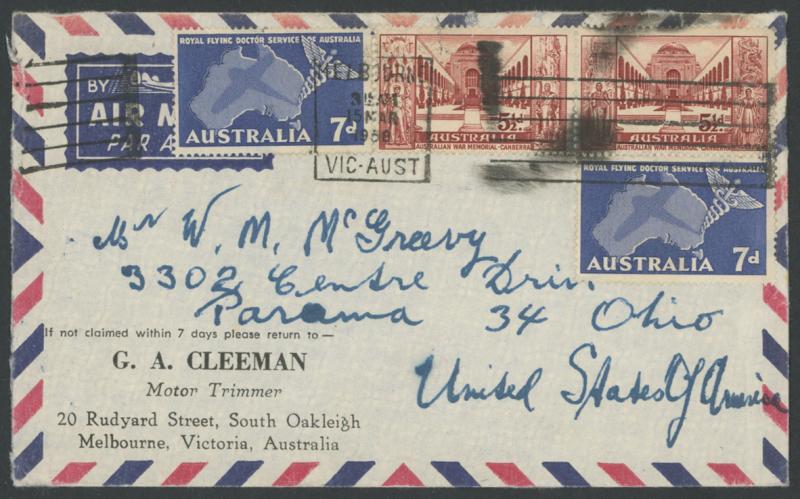 BY
AIR M
PAR A
ROYAL FLYING DOCTOR SERVICE OF AUSTRALIA
AUSTRALIA 7d
5½d
AUSTRALIA
AUSTRALIAN WAR MEMORIAL-CANBERRA
5½d
AUSTRALIA
AUSTRALIAN WAR MEMORIAL-CANBERRA
MELBOURNE
15 MAR
VIC-AUST
ROYAL FLYING DOCTOR SERVICE OF AUSTRALIA
AUSTRALIA 7d
Mr W. M. McGreevy
3302 Centre Driv
Parama 34 Ohio
United States Of America
If not claimed within 7 days please return to—
G. A. CLEEMAN
Motor Trimmer
20 Rudyard Street, South Oakleigh
Melbourne, Victoria, Australia